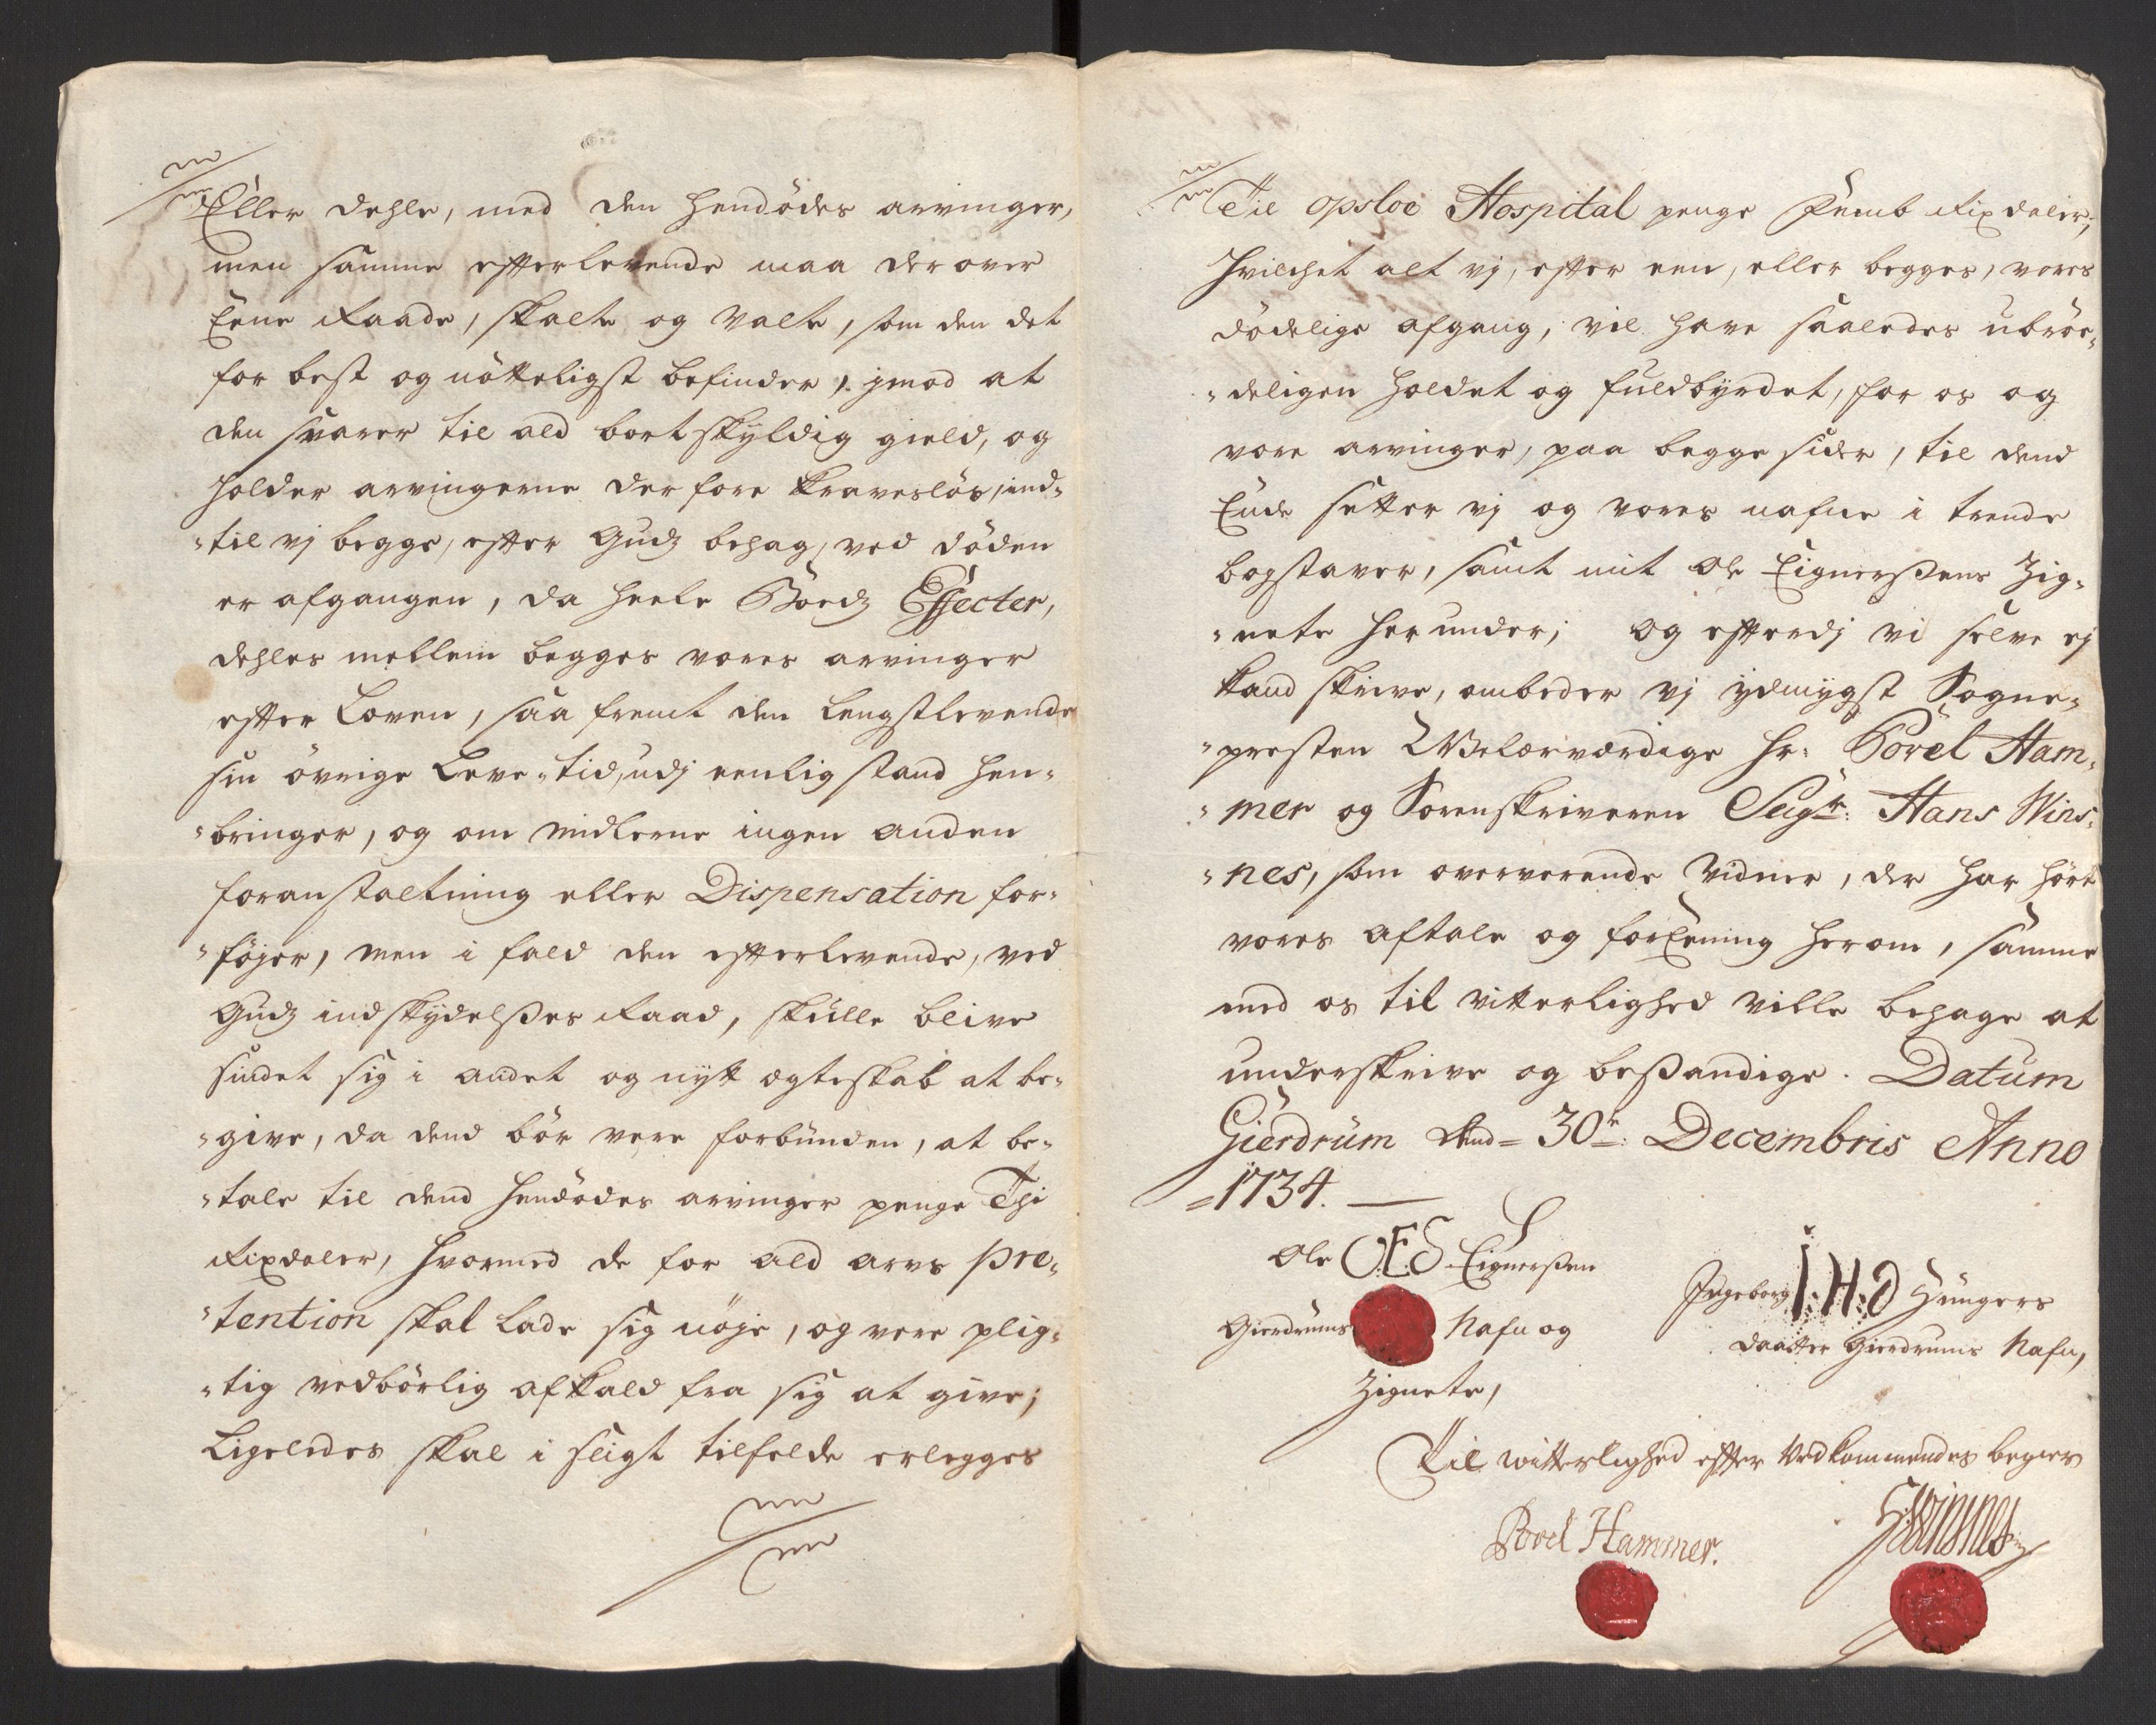 Eller dehle, med den hendödes arvinger,
men samme efterlevende maa derover
Eene Raade, skalte og valte, som den det
for best og nötteligst befinder, jmod at
den svarer til ald bortskyldig gield, og
holder arvingerne derfore kravesløs, ind-
"til vj begge, efter Gudz behag, ved döden
er afgangen, da heele Boedz Effecter,
dehles mellem begges vores arvinger
efter Loven, saa fremt den Lengstlevende
sin övrige Leve-tid, udj eenlig stand hen-
"bringer, og om midlerne ingen anden
foranstaltning eller Dispensation for-
"föjer, men i fald den efterlevende, ved
Gudz indskydelßes Raad, skulle blive
sindet sig i andet og nytt ægteskab at be-
"give, da dend bör vere forbunden, at be-
"tale til dend hendödes arvinger penge Thi
Rixdaler, hvormed de for ald arvs præ-
"tention skal lade sig nöje, og vere plig-
"tig vedbörlig afkald fra sig at give;
Ligeledes skal i sligt tilfelde erlegges
Til Opsloe Hospital penge Femb Rixdaler;
Hvilchet alt vj, efter een, eller begges, vores
dödelige afgang, vil have saaledes ubröe-
"deligen holdet og fuldbyrdet, for os og
vore arvinger, paa begge sider, til dend
Ende setter vj og vores nafne i trende
bogstaver, samt mit Ole Eignerßens Zig-
"nete herunder; og efterdj vi selve ej
kand skrive, ombeder vj ydmygst Sogne-
"presten Welærværdige Hr: Povel Ham-
"mer og Sorenskriveren Seigr: Hans Wins-
"nes, som oververende vidner, der har hört
vores aftale og forEening herom, samme
med os til vitterlighed ville behage at
underskrive og beßandige. Datum
Gierdrum dend= 30te: Decembris Anno
=1734.
Ole OES Eignerßen
Gierdrums Nafn og
Zignete,
Ingeborg I.H.D Hungers
daatter Gierdrums Nafn,
Til witterlighed efter Vedkommendes begier
Povel Hammer.
HWinsnes